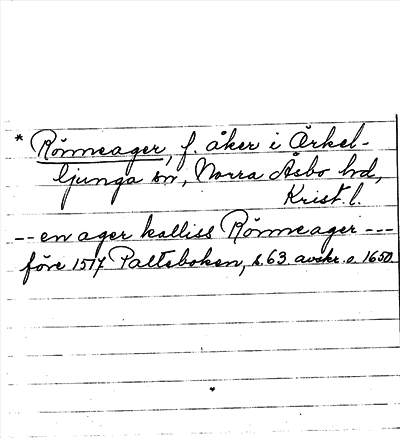 * Rönneager, f. åker i Örkel-
ljunga sn, Norra Åsbo hd,
Krist. l.
-- en ager kalliss Rönneager ---
före 1517 Paltsboken, s. 63 avskr. o. 1650